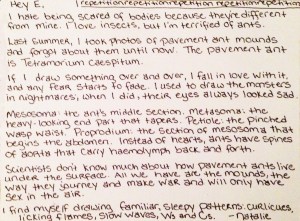 Hey E.
repetitionrepetitionrepetitionrepetition
repetitionrepetitionrepetitionrepetitionrepetition
I hate being scared of bodies because they're different
from mine. I love insects, but I'm terrified of ants.
Last summer, I took photos of pavement ant mounds
and forgot about them until now. The pavement ant
is Tetramorium caespitum.
If I draw something over and over, I fall in love with it,
and any fear starts to fade. I used to draw the monsters
in nightmares; when I did, their eyes always looked sad.
Mesosoma: the ant's middle section. Metasoma: the
heavy-looking end part that tapers. Petiole: the pinched
wasp waist. Proprodium: the section of mesosoma that
begins the abdomen. Instead of hearts, ants have spines
of aorta that carry haemolymph back and forth.
Scientists don't know much about how pavement ants live
under the surface. All we have are the mounds, the
way they journey and make war and will only have
sex in the air.
I find myself drawing familiar, sleepy patterns: curlicues,
licking flames, slow waves, Ws and Cs.